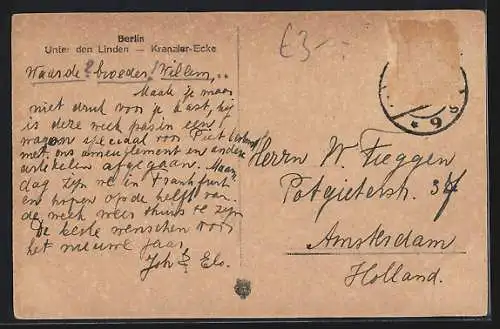 Berlin
Unter den Linden — Kranzler-Ecke
£3-
Waarde broeder Willem,
Maak je maar
niet druk voor je kast, hij
is deze week pas in een
wagon speciaal voor Piet
met ons ameublement en andere
artikelen afgegaan. Maan
dag zijn we in Frankfurt
en hopen op de helft van
de week weer thuis te zijn
De beste wenschen voor
het nieuwe jaar,
Joh & Els.
* 9 S
Herrn W. Fieggen
Potgieterstr. 34
Amsterdam
Holland.